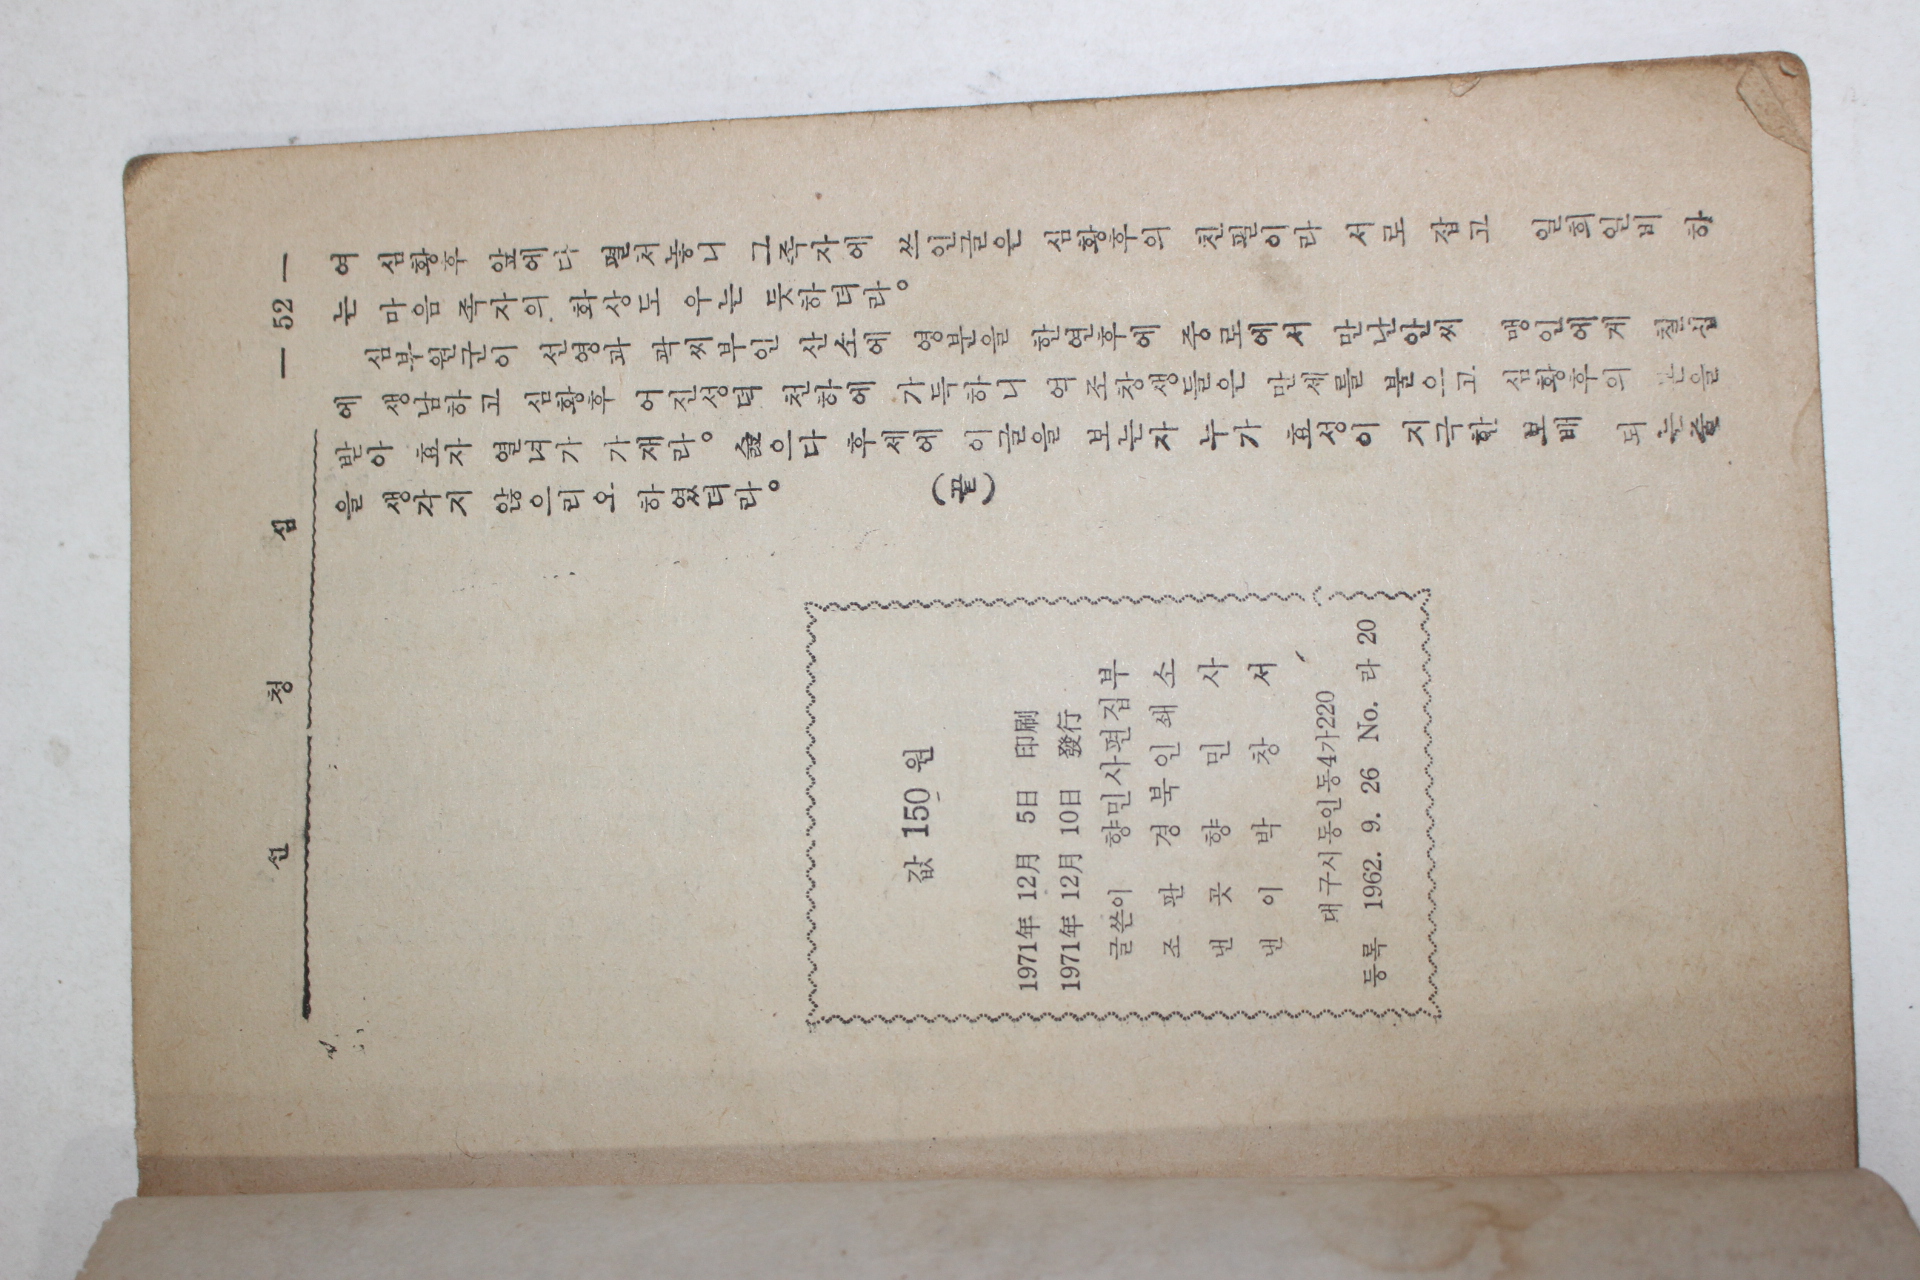 — 52 —
심 청 선
여 심황후 앞에다 펼처놓니 그족자에 쓰인글은 심황후의 친필이라 서로 잡고 일희일비 하
는 마음 족자의 화상도 우는 듯하더라。
심부원군이 선영과 곽씨부인 산소에 영분을 한연후에 중로에서 만난안씨 맹인에게 칠십
에 생남하고 심황후 어진성덕 천하에 가득하니 억조창생들은 만세를 불으고 심황후의 본을
받아 효자 열녀가 가재라。 슲으다 후세에 이글을 보는자 누가 효성이 지극한 보배 되는줄
을 생각지 않으리오 하였더라。 (끝)
값 150원
1971年 12月 5日 印刷
1971年 12月 10日 發行
글쓴이 향민사편집부
조 판 경북인쇄소
낸 곳 향 민 사
낸 이 박 창 서
대구시동인동4가220
등록 1962. 9. 26 No. 라 20